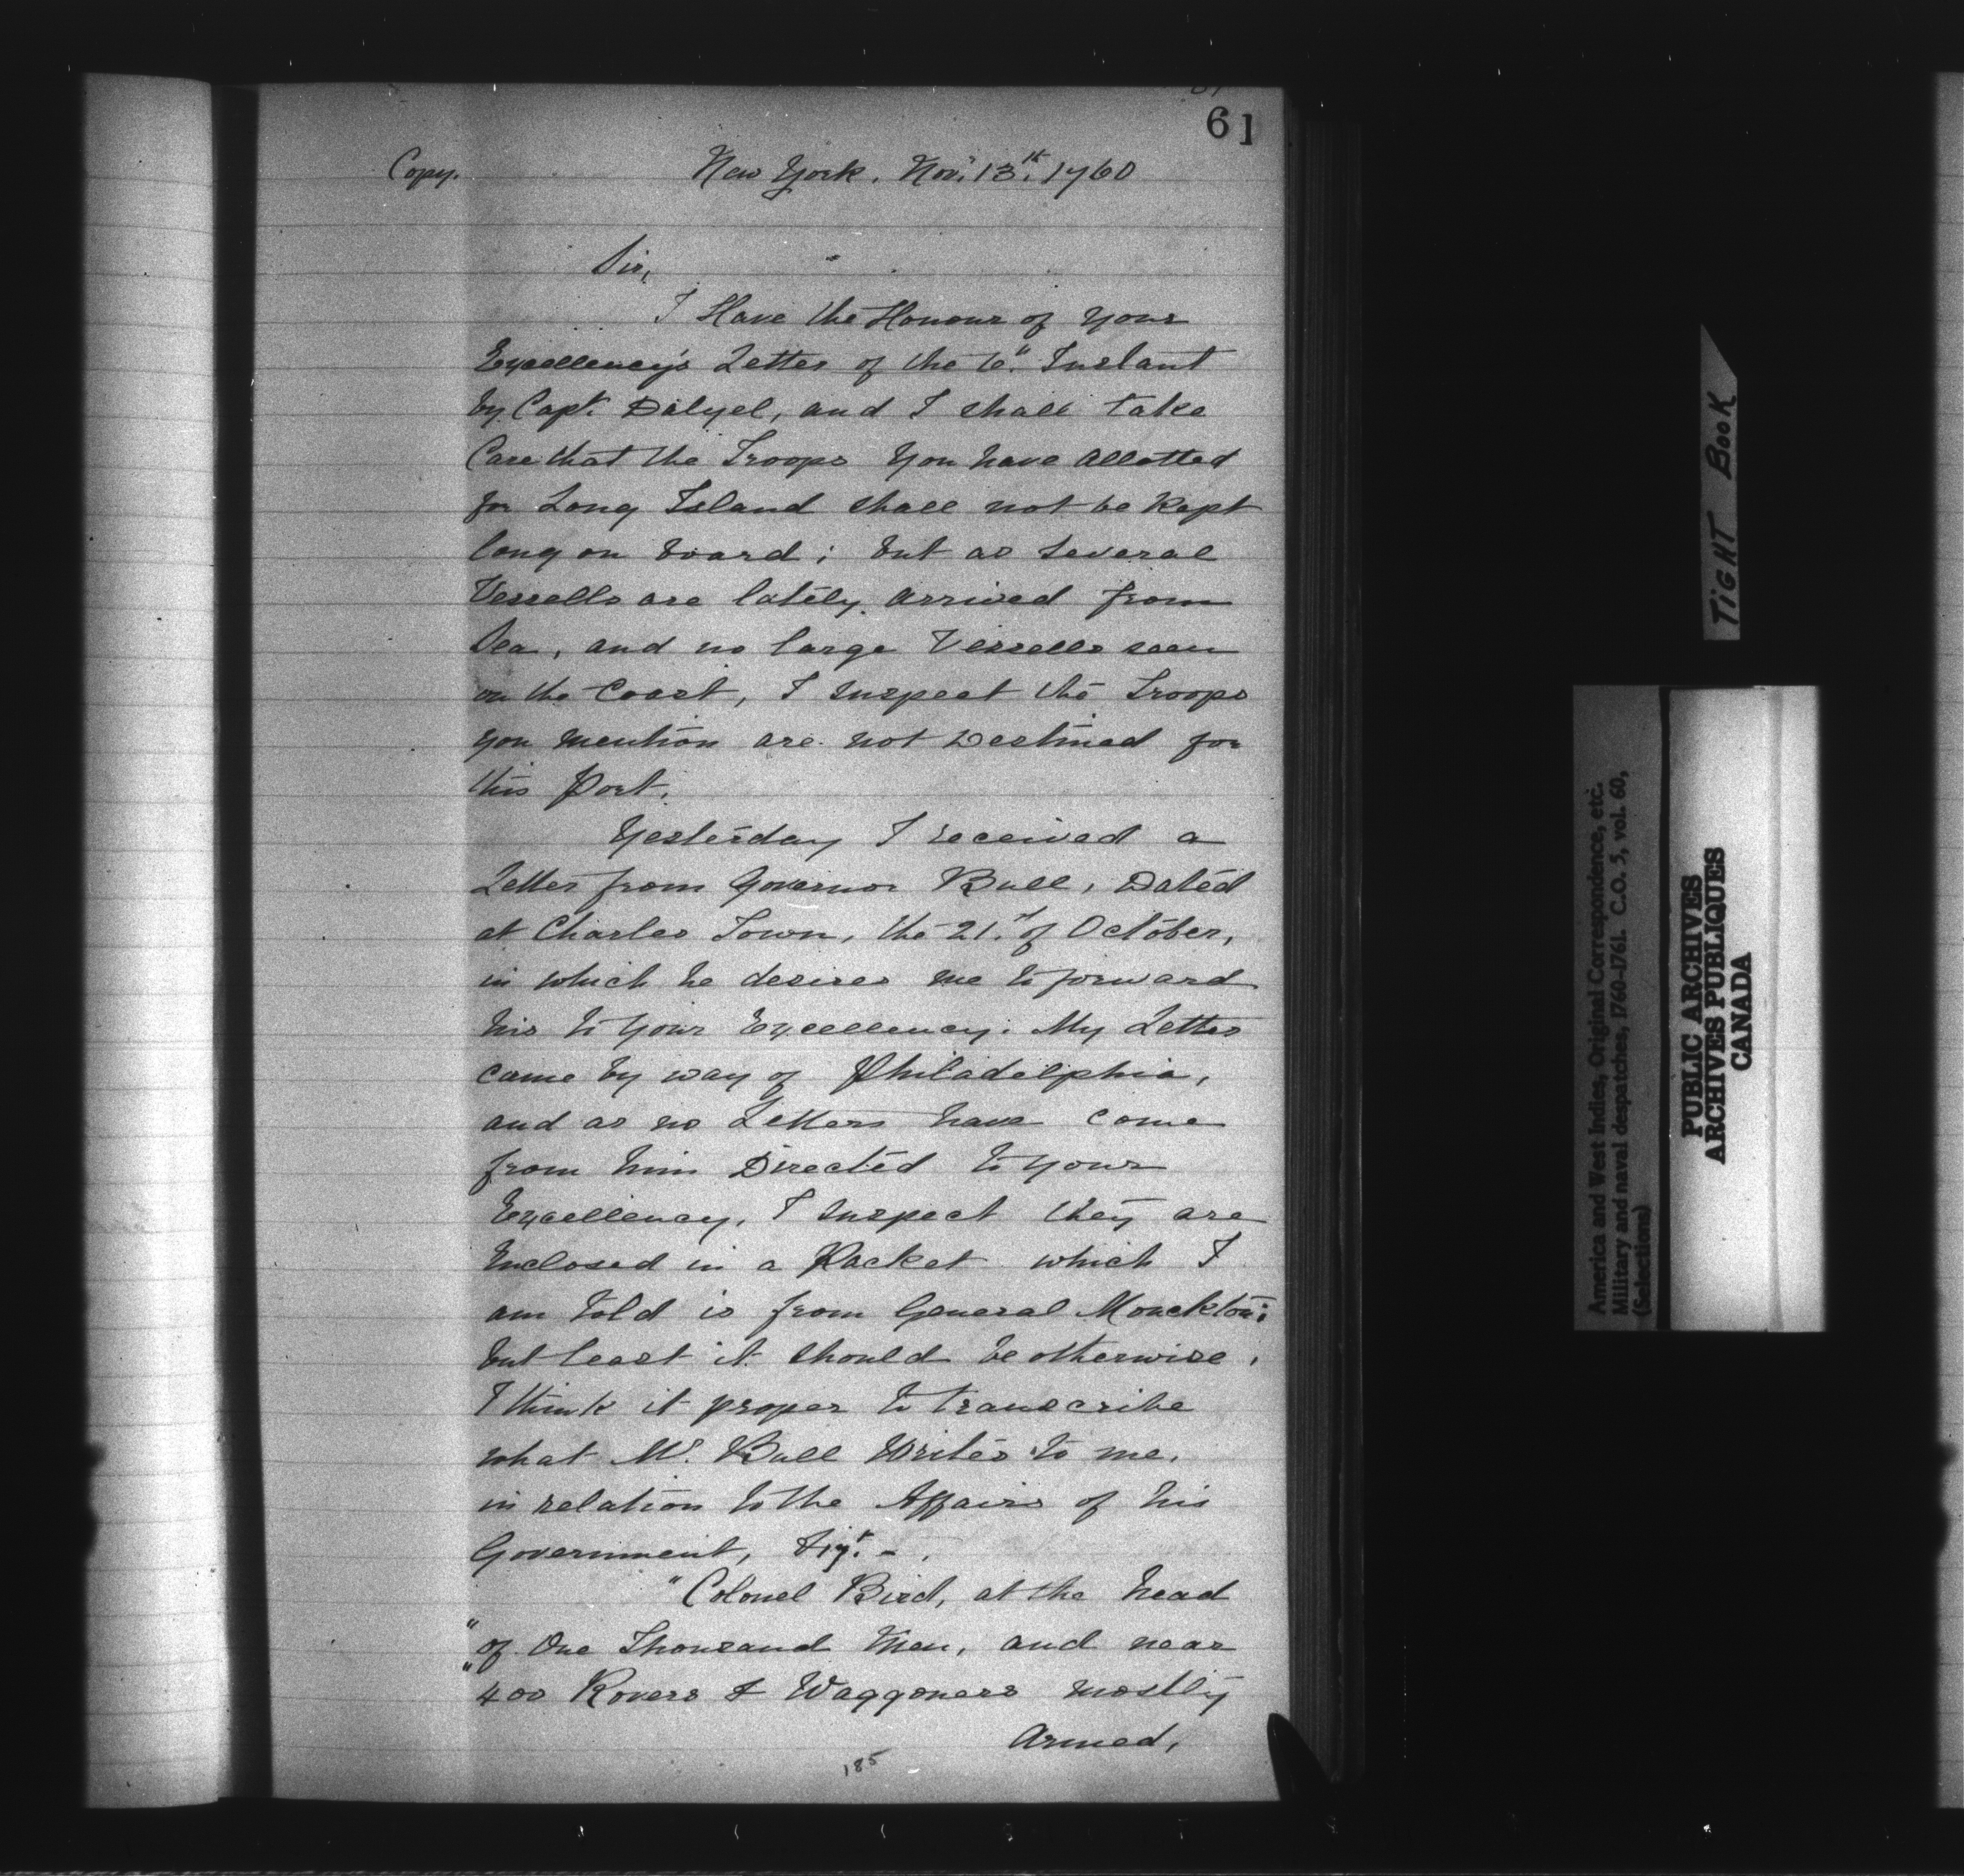 61
Copy.
New York. Novr. 13th. 1760
Sir,
I Have the Honour of Your
Excellency's Letter of the 6th. Instant
by Capt. Dalyel, and I shall take
Care that the Troops You have allotted
for Long Island shall not be kept
long on board; but as several
Vessells are lately arrived from
Sea, and no large Vessells seen
on the Coast, I suspect the Troops
you mention are not Destined for
this Port.
Yesterday I received a
Letter from Governor Bull, Dated
at Charles Town, the 21st of October,
in which he desires me to forward
his to Your Excellency. My Letter
came by way of Philadelphia,
and as no Letters have come
from him Directed to Your
Excellency, I suspect they are
Enclosed in a Packet which I
am told is from General Monckton;
but least it should be otherwise,
I think it proper to transcribe
what Mr. Bull Writes to me,
in relation to the Affairs of his
Government,
"Colonel Bird, at the head
"of One Thousand Men, and near
"400 Rovers & Waggoners mostly
Armed,
185
TIGHT BOOK
America and West Indies, Original Correspondence, etc.
Military and naval despatches, 1760-1761. C.O. 5, vol. 60,
(Selections)
PUBLIC ARCHIVES
ARCHIVES PUBLIQUES
CANADA